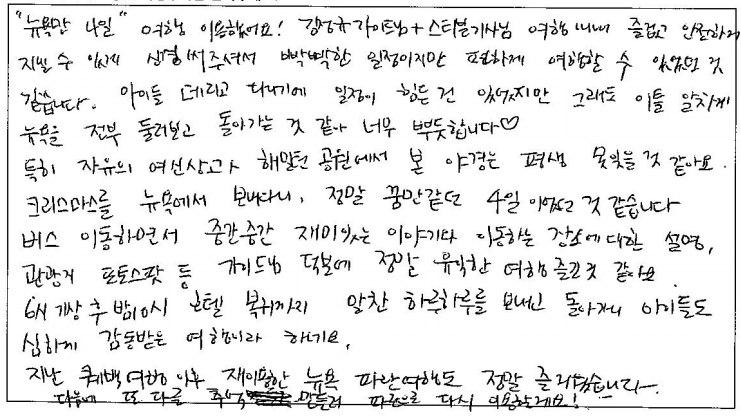 "뉴욕만 4일" 여행 이용했어요! 가이드님+스티븐기사님 여행 내내 즐겁고 안전하게
지낼 수 있게 신경써주셔서 빡빡한 일정이지만 편하게 여행할 수 있었던 것
같습니다. 아이들 데리고 다니기에 일정이 힘든 건 있었지만 그래도 이틀 알차게
뉴욕을 전부 둘러보고 돌아가는 것 같아 너무 뿌듯합니다♡
특히 자유의 여신상과 해밀턴 공원에서 본 야경은 평생 못잊을 것 같아요.
크리스마스를 뉴욕에서 보내다니, 정말 꿈만같던 4일 이었던 것 같습니다
버스 이동하면서 중간중간 재미있는 이야기와 이동하는 장소에 대한 설명,
관광지 포토스팟 등 가이드님 덕분에 정말 유익한 여행 즐긴것 같아요.
6시 기상 후 밤10시 호텔 복귀까지 알찬 하루하루를 보내고 돌아가니 아이들도
심하게 감동받은 여행이라 하네요.
지난 퀘백여행 이후 재이용한 뉴욕 파란여행도 정말 즐거웠습니다.
다음에 또 다른 추억 만들러 파란으로 다시 이용할게요!